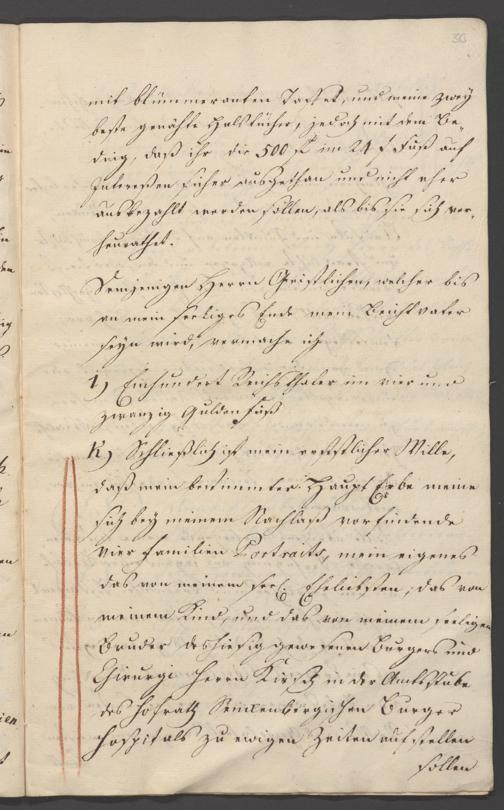 30
mit blümmeranten Taffet, und meine zwey
beste genähte Halstücher, jedoch mit dem Be-
ding, daß ihr die 500 f im 24 f Fuß auf
Interessen sicher ausgethan und nicht eher
ausbezahlt werden sollen, als bis sie sich ver-
heurathet.
Demjenigen Herrn Geistlichen, welcher bis
an mein seeliges Ende mein Beichtvater
seyn wird, vermache ich
i) Einhundert Reichsthaler im vier und
zwanzig Gulden Fuß
K) Schließlich ist mein ernstlicher Wille,
daß mein bestimmter Haupt Erbe meine
sich bey meinem Nachlaß vorfindende
vier Familien Portraits, mein eigenes
das von meinem seel. Eheliebsten, das von
meinem Kind, und das von meinem seeligen
Bruder des hiesig gewesenen Burgers und
Chirurgi Herrn Kirsch in der Amtsstube
des Hofrath Senckenbergischen Burger
Hospitals zu ewigen Zeiten aufstellen
sollen